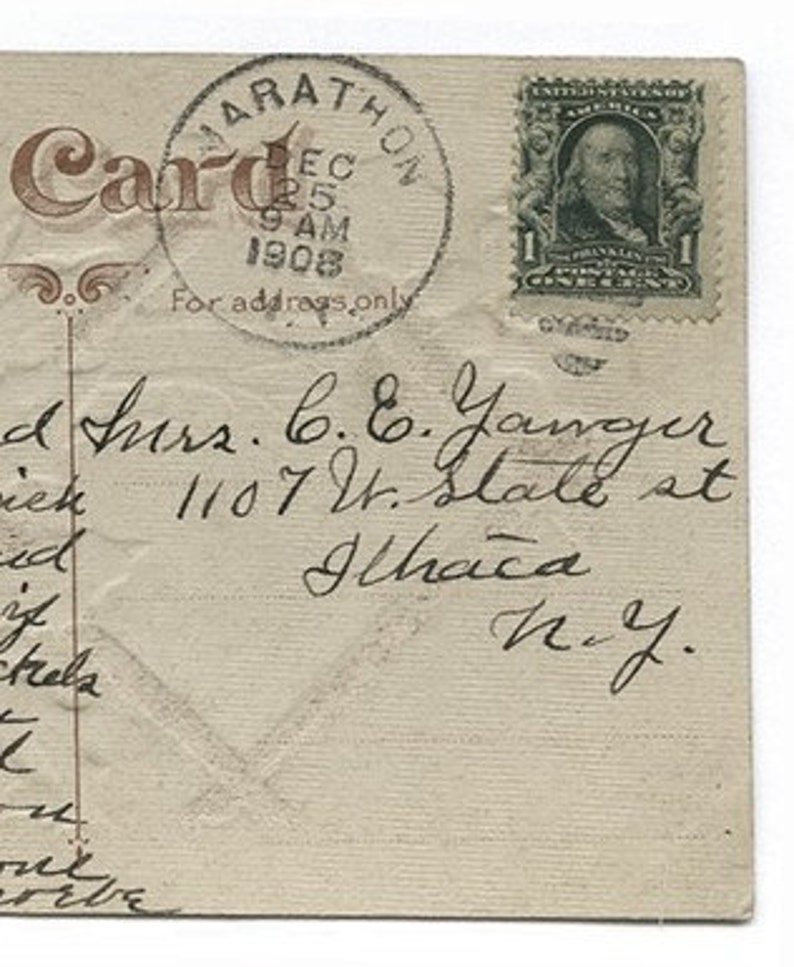 Card
MARATHON
DEC
25
9 AM
1908
N.Y.
For address only
UNITED STATES OF
AMERICA
1 FRANKLIN 1
POSTAGE
ONE CENT
Mrs. C. E. Yawger
1107 W. State st
Ithaca
N.Y.
d
if